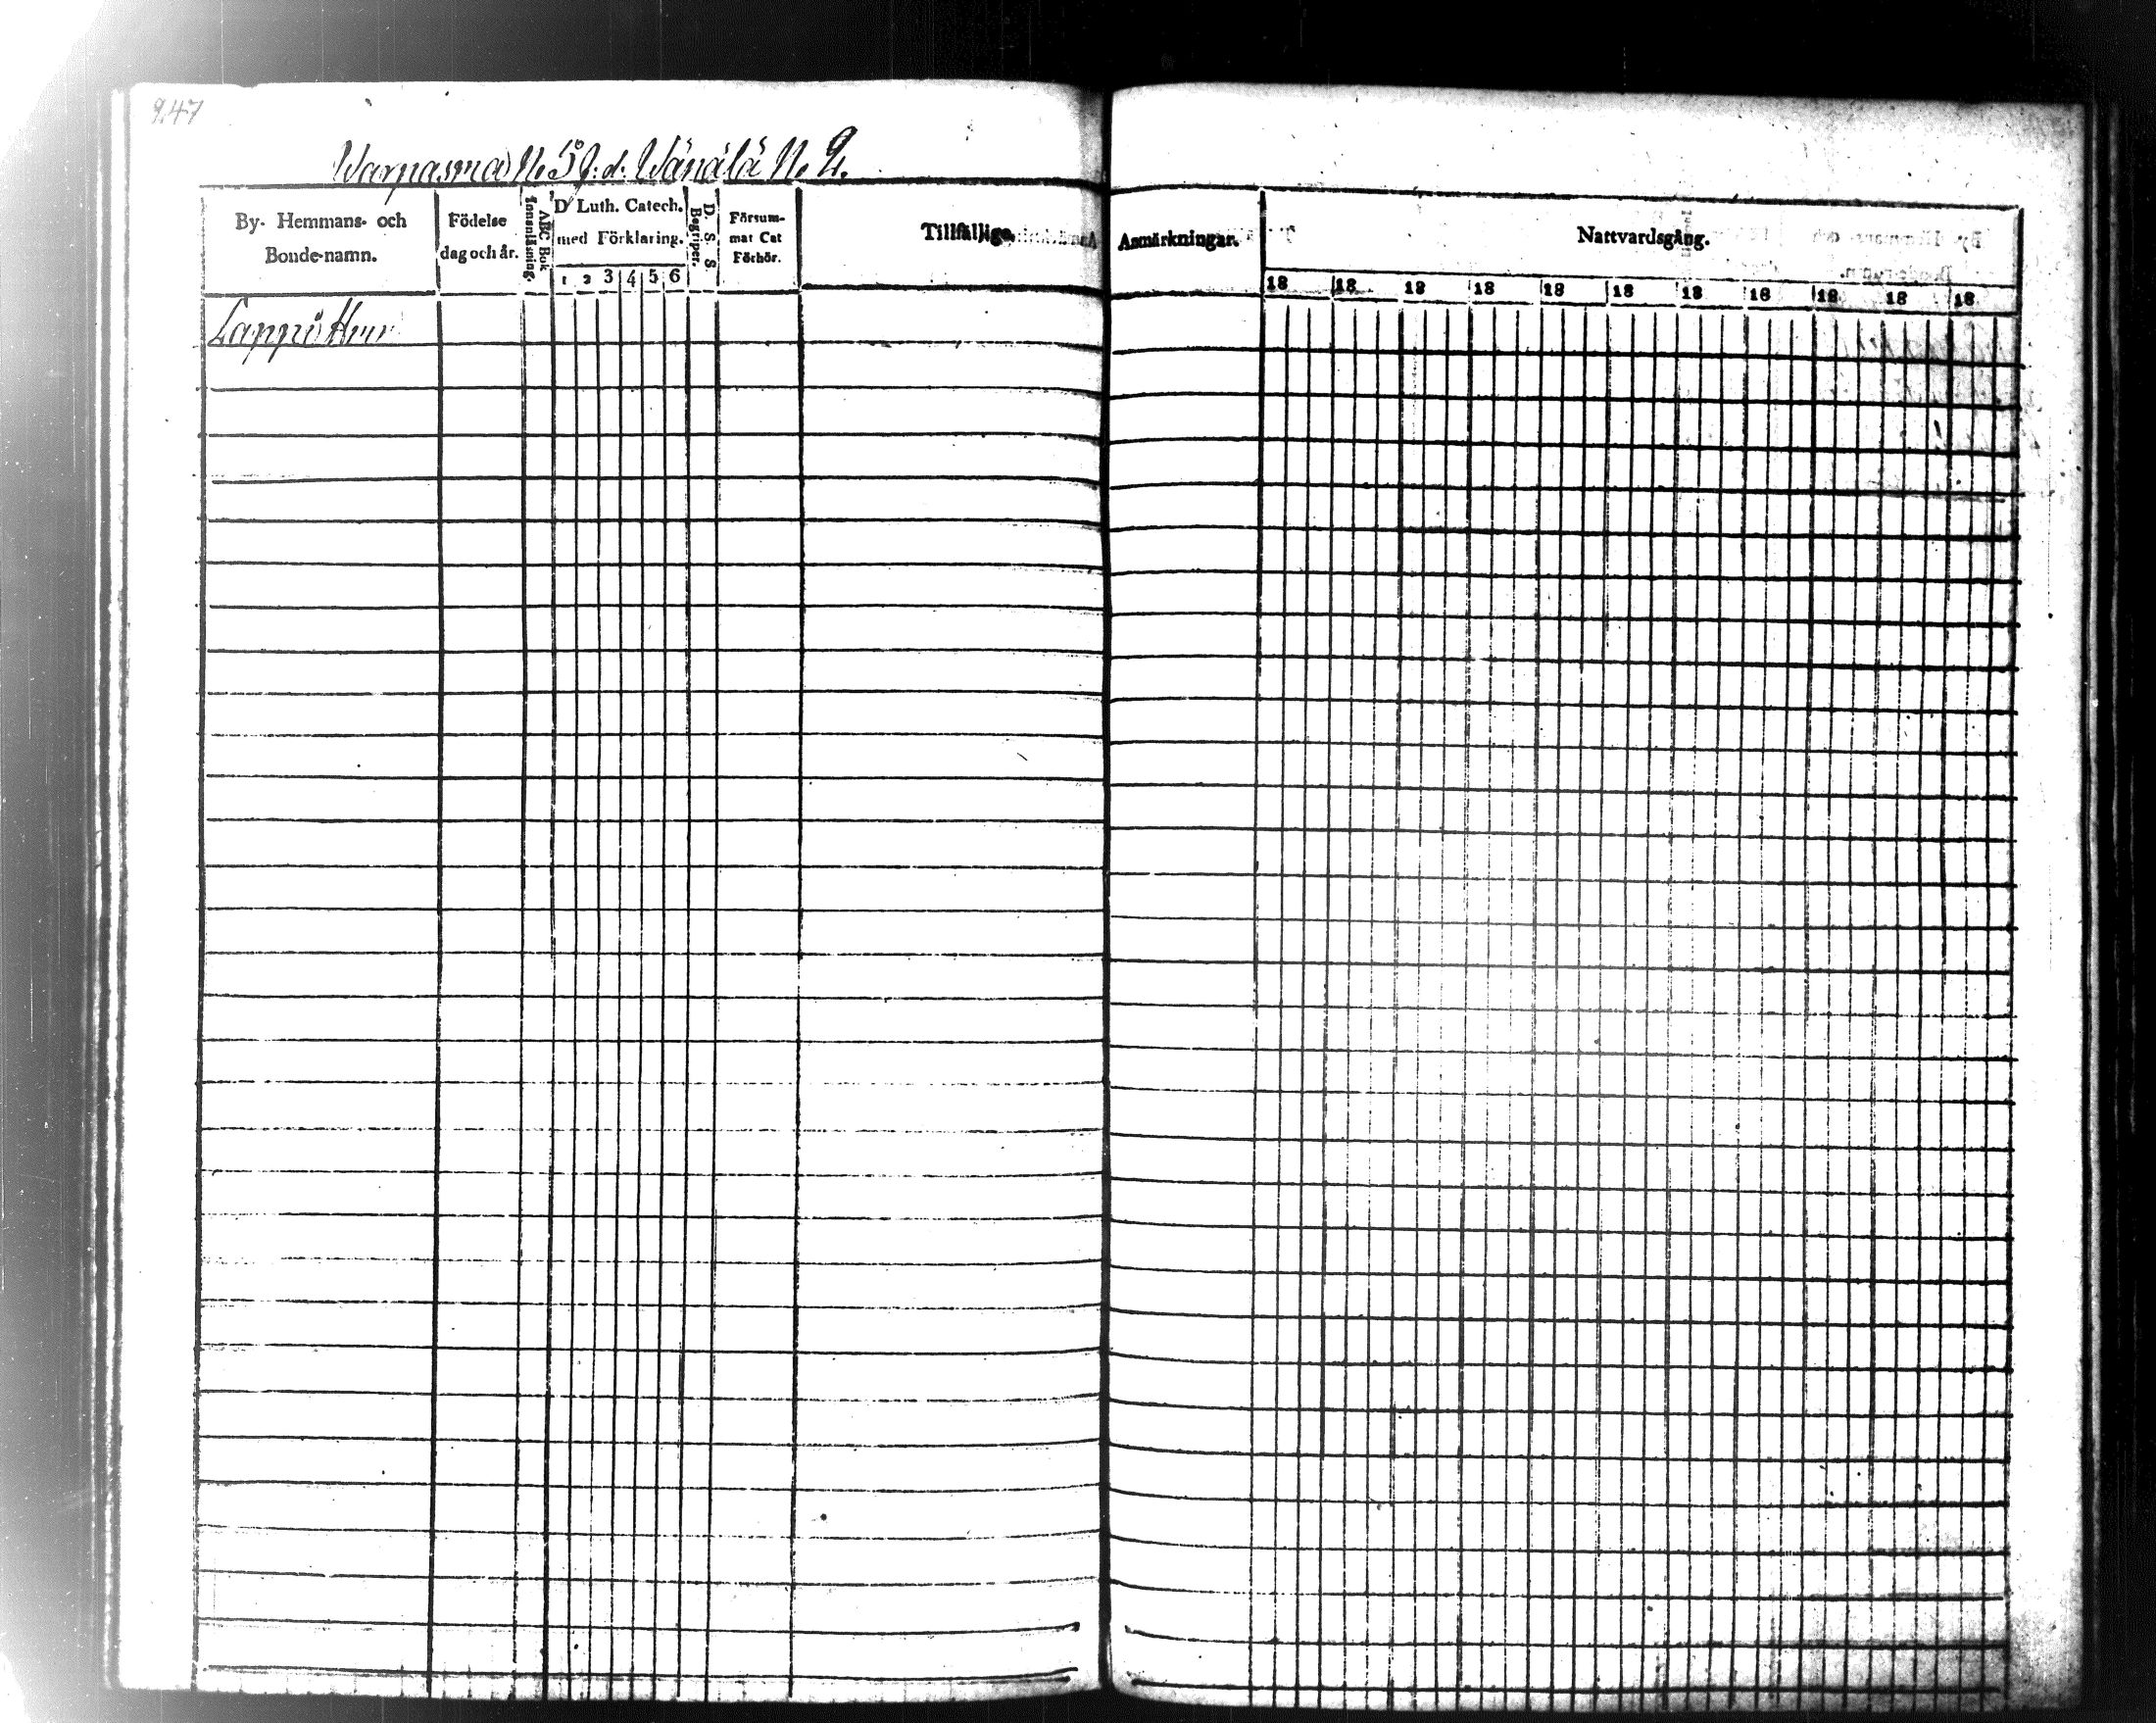 947
Warpasma N. 5 f. d. Wänälä N. 2.
By- Hemmans- och Bonde-namn.
Födelse dag och år.
ABC Bok Innanläsning.
D Luth. Catech. med Förklaring.
1 2 3 4 5 6
D. S. S Begriper.
Försummat Cat Förhör.
Tillfällige
Anmärkningar.
Nattvardsgång.
18 18 18 18 18 18 18 18 18 18 18
Lappi